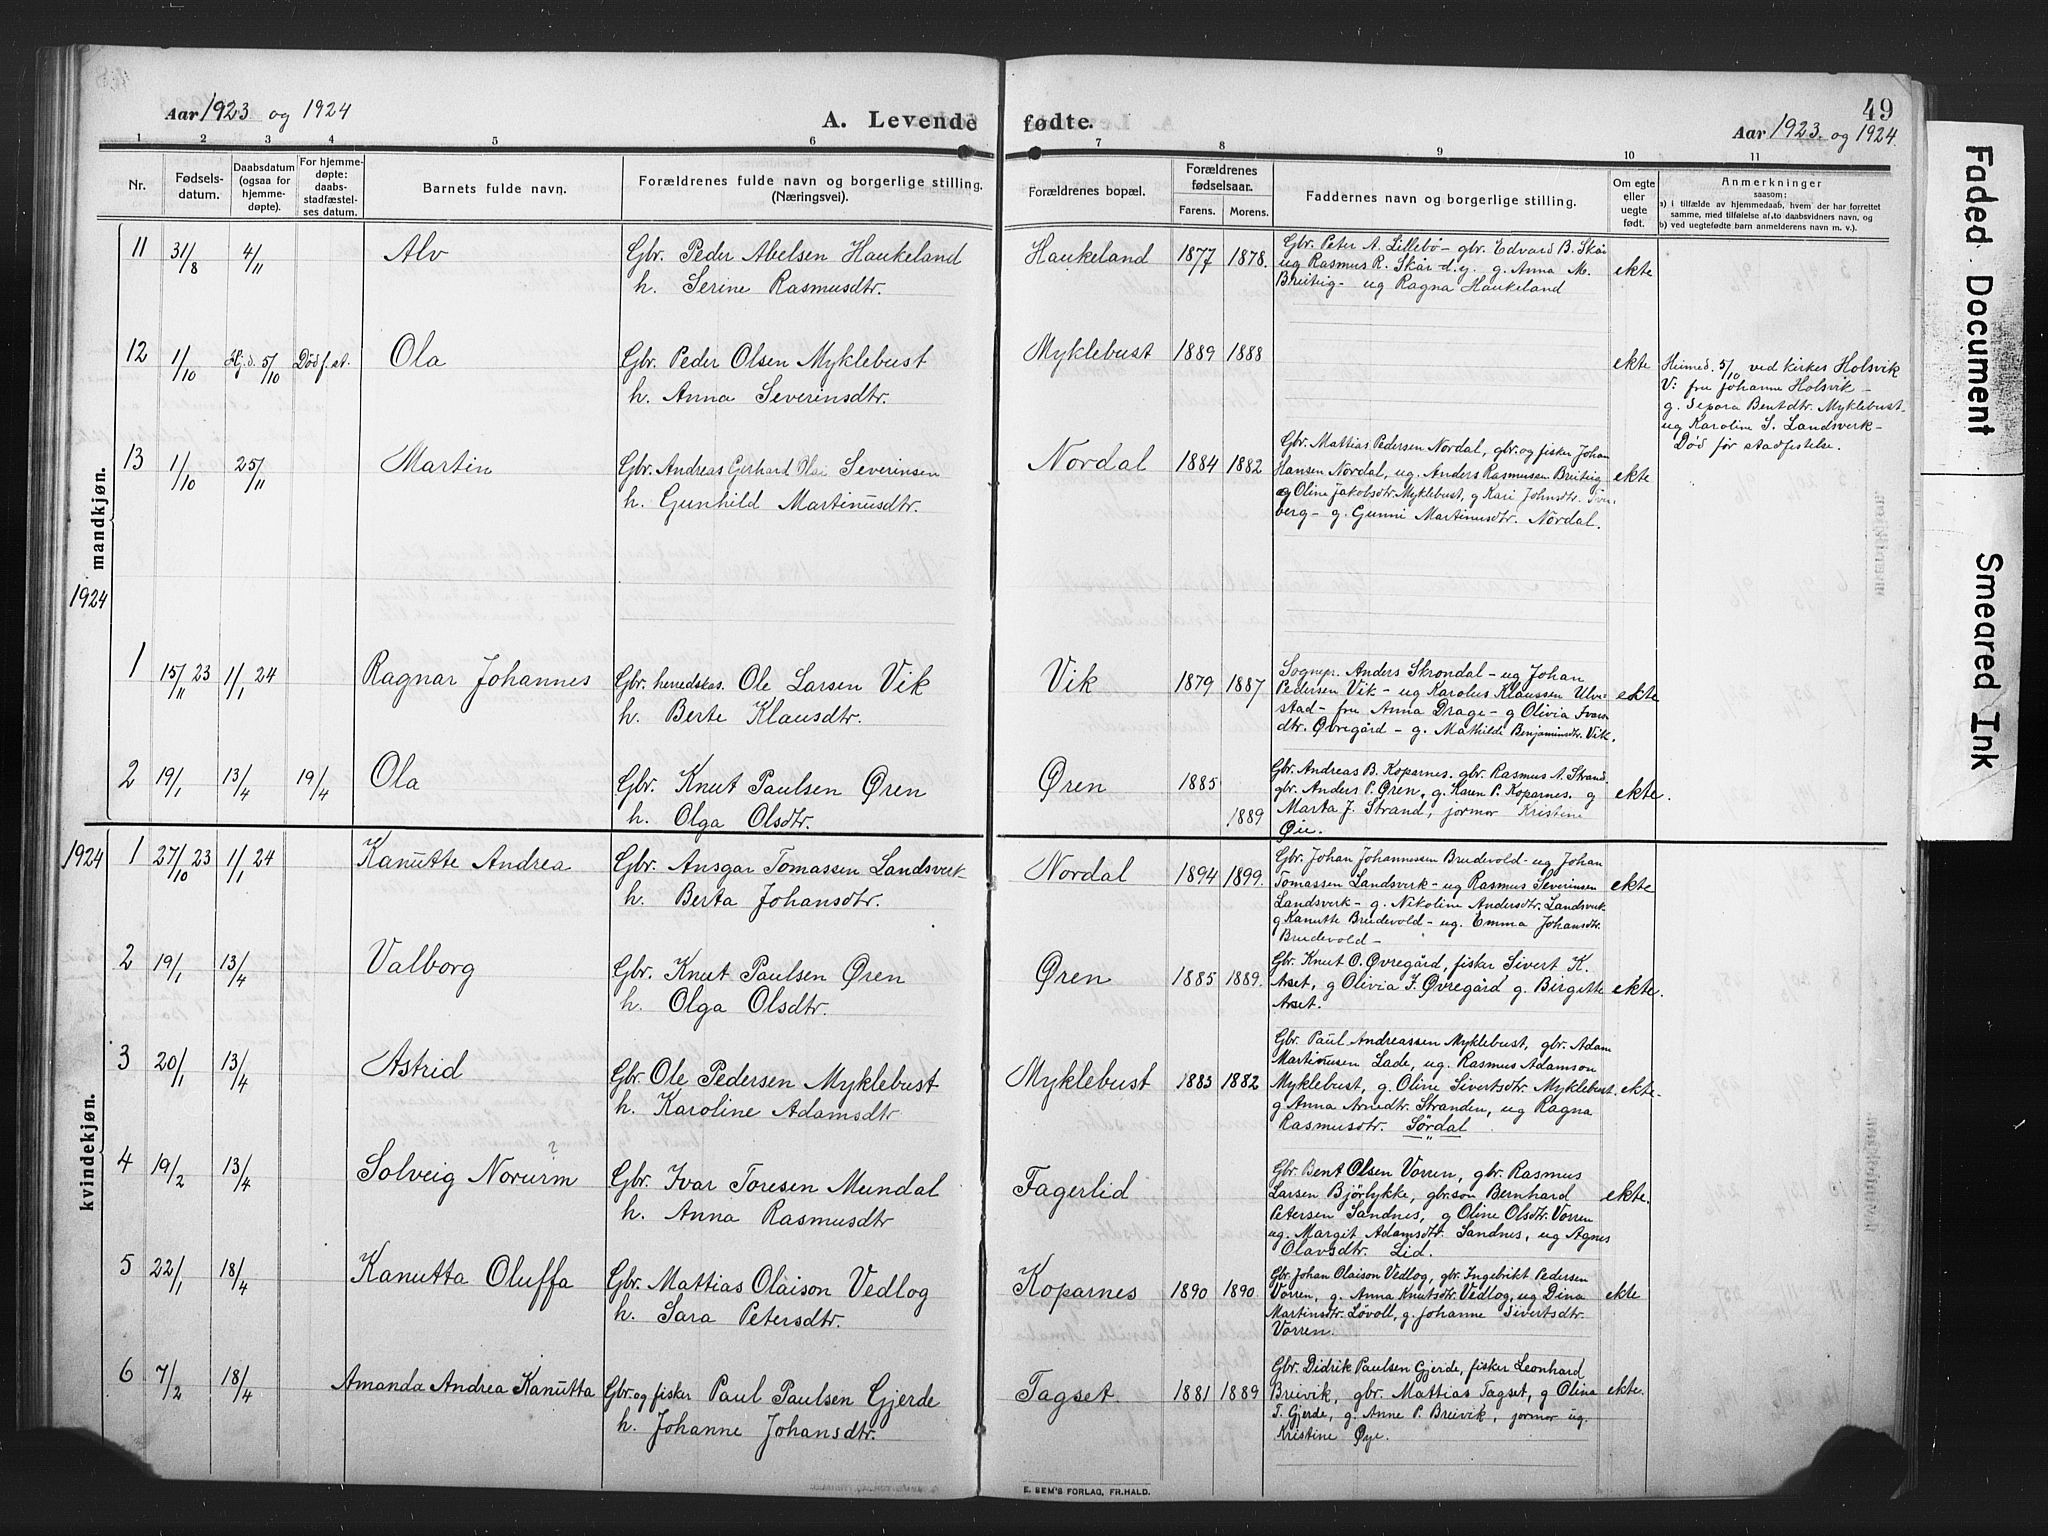 Aar 1923 og 1924
A. Levende fødte.
49
Aar 1923 og 1924
1 2 3 4 5 6 7 8 9 10 11
Nr.
Fødselsdatum.
Daabsdatum (ogsaa for hjemmedøpte).
For hjemmedøpte: daabsstadfæstelses datum.
Barnets fulde navn.
Forældrenes fulde navn og borgerlige stilling. (Næringsvei).
Forældrenes bopæl.
Forældrenes fødselsaar.
Farens. Morens.
Faddernes navn og borgerlige stilling.
Om egte eller uegte født.
Anmerkninger
saasom:
a) i tilfælde av hjemmedaab, hvem der har forrettet samme, med tilføielse af to daabsvidners navn, og
b) ved uegtefødte barn anmelderens navn m. v.).
mandkjøn.
11 31/8 4/11 Alv
Gbr. Peder Abelsen Haukeland
h. Serine Rasmusdtr.
Haukeland 1877 1878.
Gbr. Peter A. Lillebø - gbr. Edvard B. Skår
ug Rasmus R. Skår - d.y. g. Anna M.
Breiteig - ug Ragna Haukeland
ekte
12 1/10 Hj.d. 5/10 Død f. st. Ola
Gbr. Peder Olsen Myklebust
h. Anna Severinsdtr.
Myklebust 1889 1888
ekte
Heimed. 5/10 ved kirkes Holsvik
V: fru Johanne Holsvik -
g. Sepora Bentdtr. Myklebust -
ug Karoline S. Landsverk -
Død før stadfestelse.
13 1/10 25/11 Martin
Gbr. Andreas Gerhard Olai Severinsen
h. Gunhild Martinusdtr.
Nordal 1884 1882
Gbr. Mattias Pedersen Nordal, gbr. og fisker Johan
Hansen Nordal, ug. Anders Rasmussen Breiteig
g Oline Jakobsdtr. Myklebust, g Kari Johnsdtr. Tver-
berg - g. Gunni Martinusdtr. Nordal.
ekte
1924
1 15/11 23 1/1 24 Ragnar Johannes
Gbr. herredskas. Ole Larsen Vik
h. Berte Klausdtr.
Vik 1879 1887
Sognepr. Anders Skrondal - ug Johan
Pedersen Vik - ug Karolus Klaussen Ulve-
stad - fru Anna Drage - g Olivia Ivars-
dtr. Øvregård - g. Mathilde Benjaminsdtr. Vik.
ekte
2 19/1 13/4 19/4 Ola
Gbr. Knut Paulsen Øren
h. Olga Olsdtr.
Øren 1885 1889
Gbr. Andreas B. Koparnes. gbr. Rasmus A. Strand.
gbr. Anders P. Øren, g. Karen P. Koparnes. g
Marta J. Strand, jormor Kristine
Øie.
ekte.
kvindekjøn.
1924
1 27/10 23 1/1 24 Kanutte Andrea
Gbr. Ansgar Tomassen Landsverk
h. Berta Johansdtr.
Nordal 1894 1899.
Gbr. Johan Johannessen Brudevold - ug Johan
Tomassen Landsverk - ug Rasmus Severinsen
Landsverk - g. Nikoline Andersdtr. Landsverk -
g Kanutte Brudevold - ug. Emma Johansdtr.
Brudevold -
ekte
2 19/1 13/4 Valborg
Gbr. Knut Paulsen Øren
h. Olga Olsdtr.
Øren 1885 1889.
Gbr. Knut O. Øvregård, fisker Sivert K.
Årset, g Olivia J. Øvregård g. Birgitte
Årset.
ekte.
3 20/1 13/4 Astrid
Gbr. Ole Pedersen Myklebust
h. Karoline Adamsdtr.
Myklebust 1883 1882
Gbr. Paul Andreassen Myklebust, gbr. Adam
Martinusen Lade, ug. Rasmus Adamson
Myklebust, g. Oline Sivertsdtr. Myklebust.
g Anna Arnedtr. Stranden, ug Ragna
Rasmusdtr. Sørdal
ekte -
4 19/2 13/4 Solveig Norurm ?
Gbr. Ivar Toresen Mundal
h. Anna Rasmusdtr
Fagerlid
Gbr. Bent Olsen Vorren, gbr. Rasmus
Larsen Bjørlykke, gbr.son Bernhard
Petersen Sandnes, g Oline Olsdtr. Vorren
ug. Margit Adamsdtr. Sandnes, ug Agnes
Olavsdtr. Lid.
ekte.
5 22/1 18/4 Kanutta Oluffa
Gbr. Mattias Olaison Vedlog
h. Sara Petersdtr.
Koparnes 1890 1890.
Gbr. Johan Olaison Vedlog, gbr. Ingebrikt Pedersen
Vorren, g. Anna Knutsdtr. Vedlog, ug Dina
Martinsdtr. Løvoll, g. Johanne Sivertsdtr.
Vorren.
ekte
6 7/2 18/4 Amanda Andrea Kanutta
Gbr. og fisker Paul Paulsen Gjerde
h. Johanne Johansdtr.
Tagset. 1881 1889
Gbr. Didrik Paulsen Gjerde, fisker Leonhard
Breivik, gbr. Mattias Tagset, g Olina
T. Gjerde, g. Anne P. Breivik, jormor ug.
Kristine Øye.
ekte.
E. SEM'S FORLAG, FR.HALD.
Faded Document
Smeared Ink